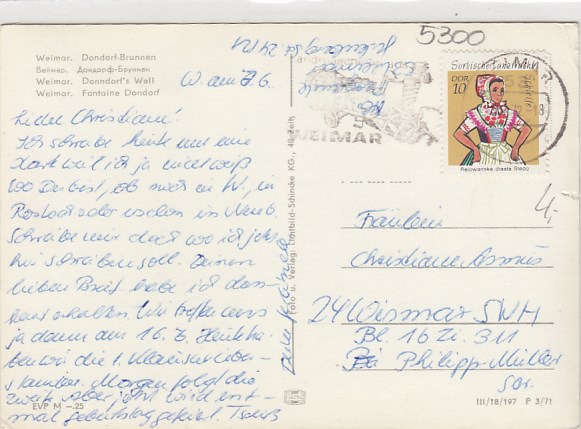 5300
Weimar. Dondorf-Brunnen
Веймар. Дондорф-Бруннен
Weimar. Donndorf's Well
Weimar. Fontaine Dondorf
W. am 7. 6.
Liebe Christiane!
Ich schreibe heute nur eine
Karte weil ich ja nicht weiß
wo Du bist, ob noch in W., in
Rostock oder schon in
Schreibe mir doch wo ich jetzt
hin schreiben soll. Deinen
lieben Brief habe ich dan-
kend erhalten. Wir treffen uns
ja dann am 16. 7. Heute ha-
ben wir die 1. Klausur
Morgen folgt die
zweite aber jetzt wird erst-
mal Geburtstag gefeiert. Tschüß
Foto u. Verlag: Lichtbild-Schincke KG., Zeitz
WEIMAR
Sorbische Tanztracht
DDR
10
Rejowanska drasta Slepo
4,-
Fräulein
Christiane Asmus
24 Wismar SWH
Bl. 16 Zi. 311
Philipp-Müller
Str.
EVP M -.25
III/18/197 P 3/71